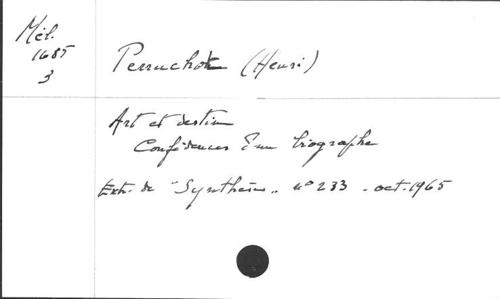 Mél.
1685
3
Perruchot (Henri)
Art et destin
Confidences d'un biographe
Extr. de "Synthèses" n° 233 - oct. 1965